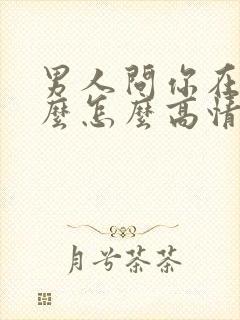 男人問你在
麼怎麼高情
月兮茶茶